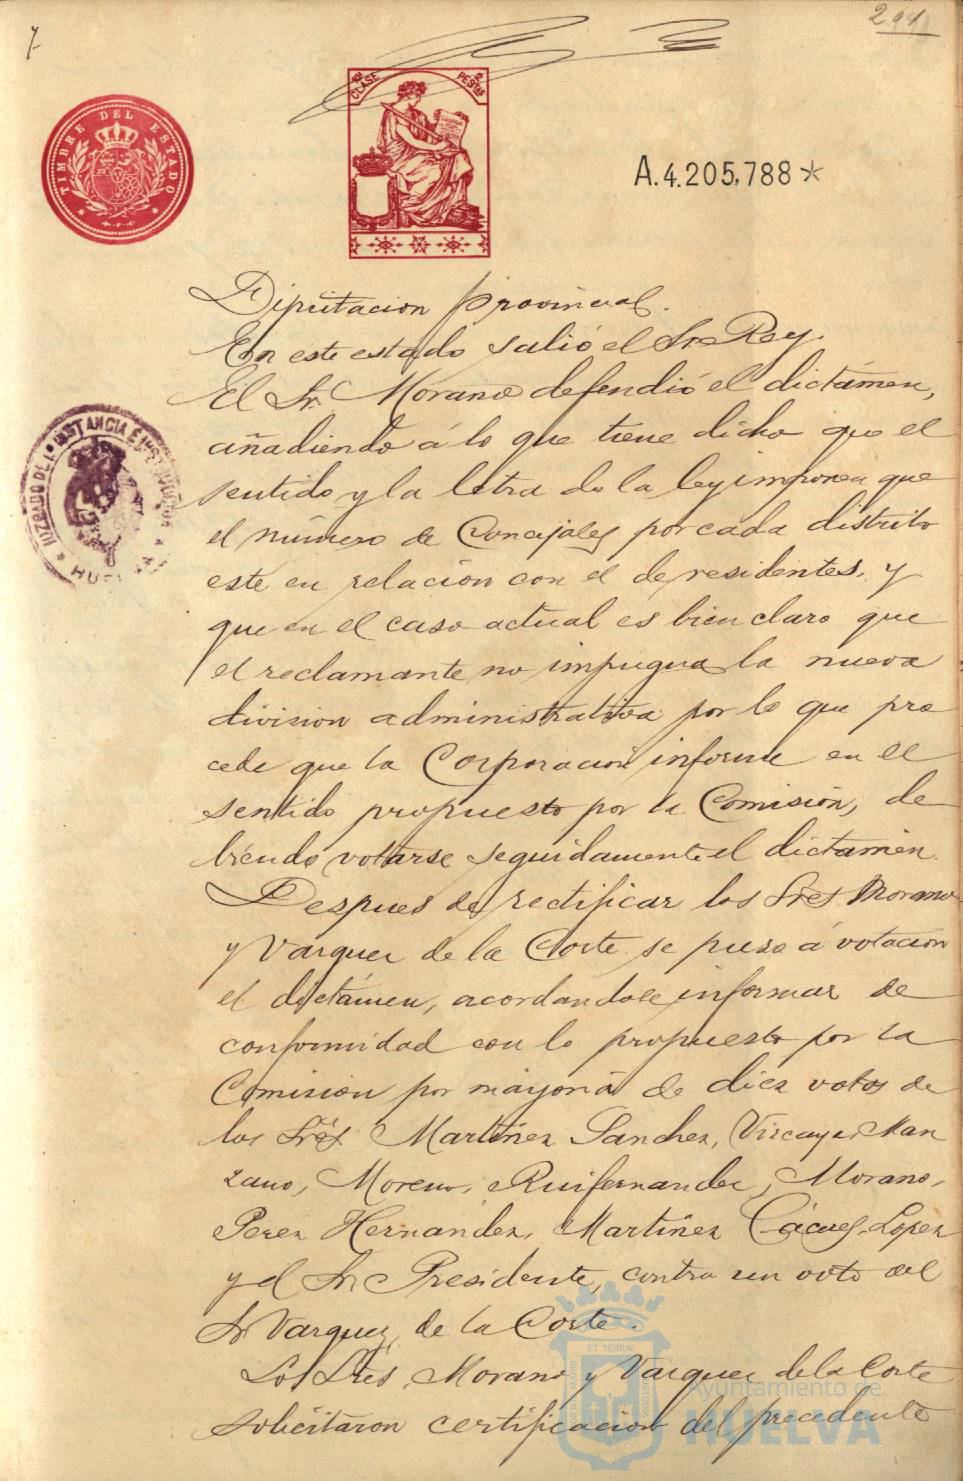 7
291
TIMBRE DEL ESTADO
CLASE
2 PESTAS
A.4.205,788*
Diputacion provincial.
En este estado salió el Sr. Rey.
El Sr. Morano defendió el dictámen,
añadiendo á lo que tiene dicho que el
sentido y la letra de la ley imponen que
el número de Concejales por cada distrito
este en relacion con el de residentes, y
que en el caso actual es bien claro que
el reclamante no impugna la nueva
division administrativa por lo que pro
cede que la Corporacion informe en el
sentido propuesto por la Comisión, de
biendo votarse seguidamente el dictamen.
Despues de rectificar los Sres Morano
y Vazquez de la Corte se puso á votacion
el dictámen, acordandose informar de
conformidad con lo propuesto por la
Comision por mayoria de diez votos de
los Sres Martinez Sanchez, Vizcaya, Man
zano, Moreno, Ruifernandez, Morano,
Perez Hernandez, Martinez Cáceres, Lopez
y el Sr. Presidente, contra un voto del
Sr Vazquez de la Corte.
Los Sres Morano y Vazquez de la Corte
solicitaron certificacion del precedente
JUZGADO DE 1ª INSTANCIA É INSTRUCCION
HUELVA
ET TERRÆ
Ayuntamiento de
HUELVA